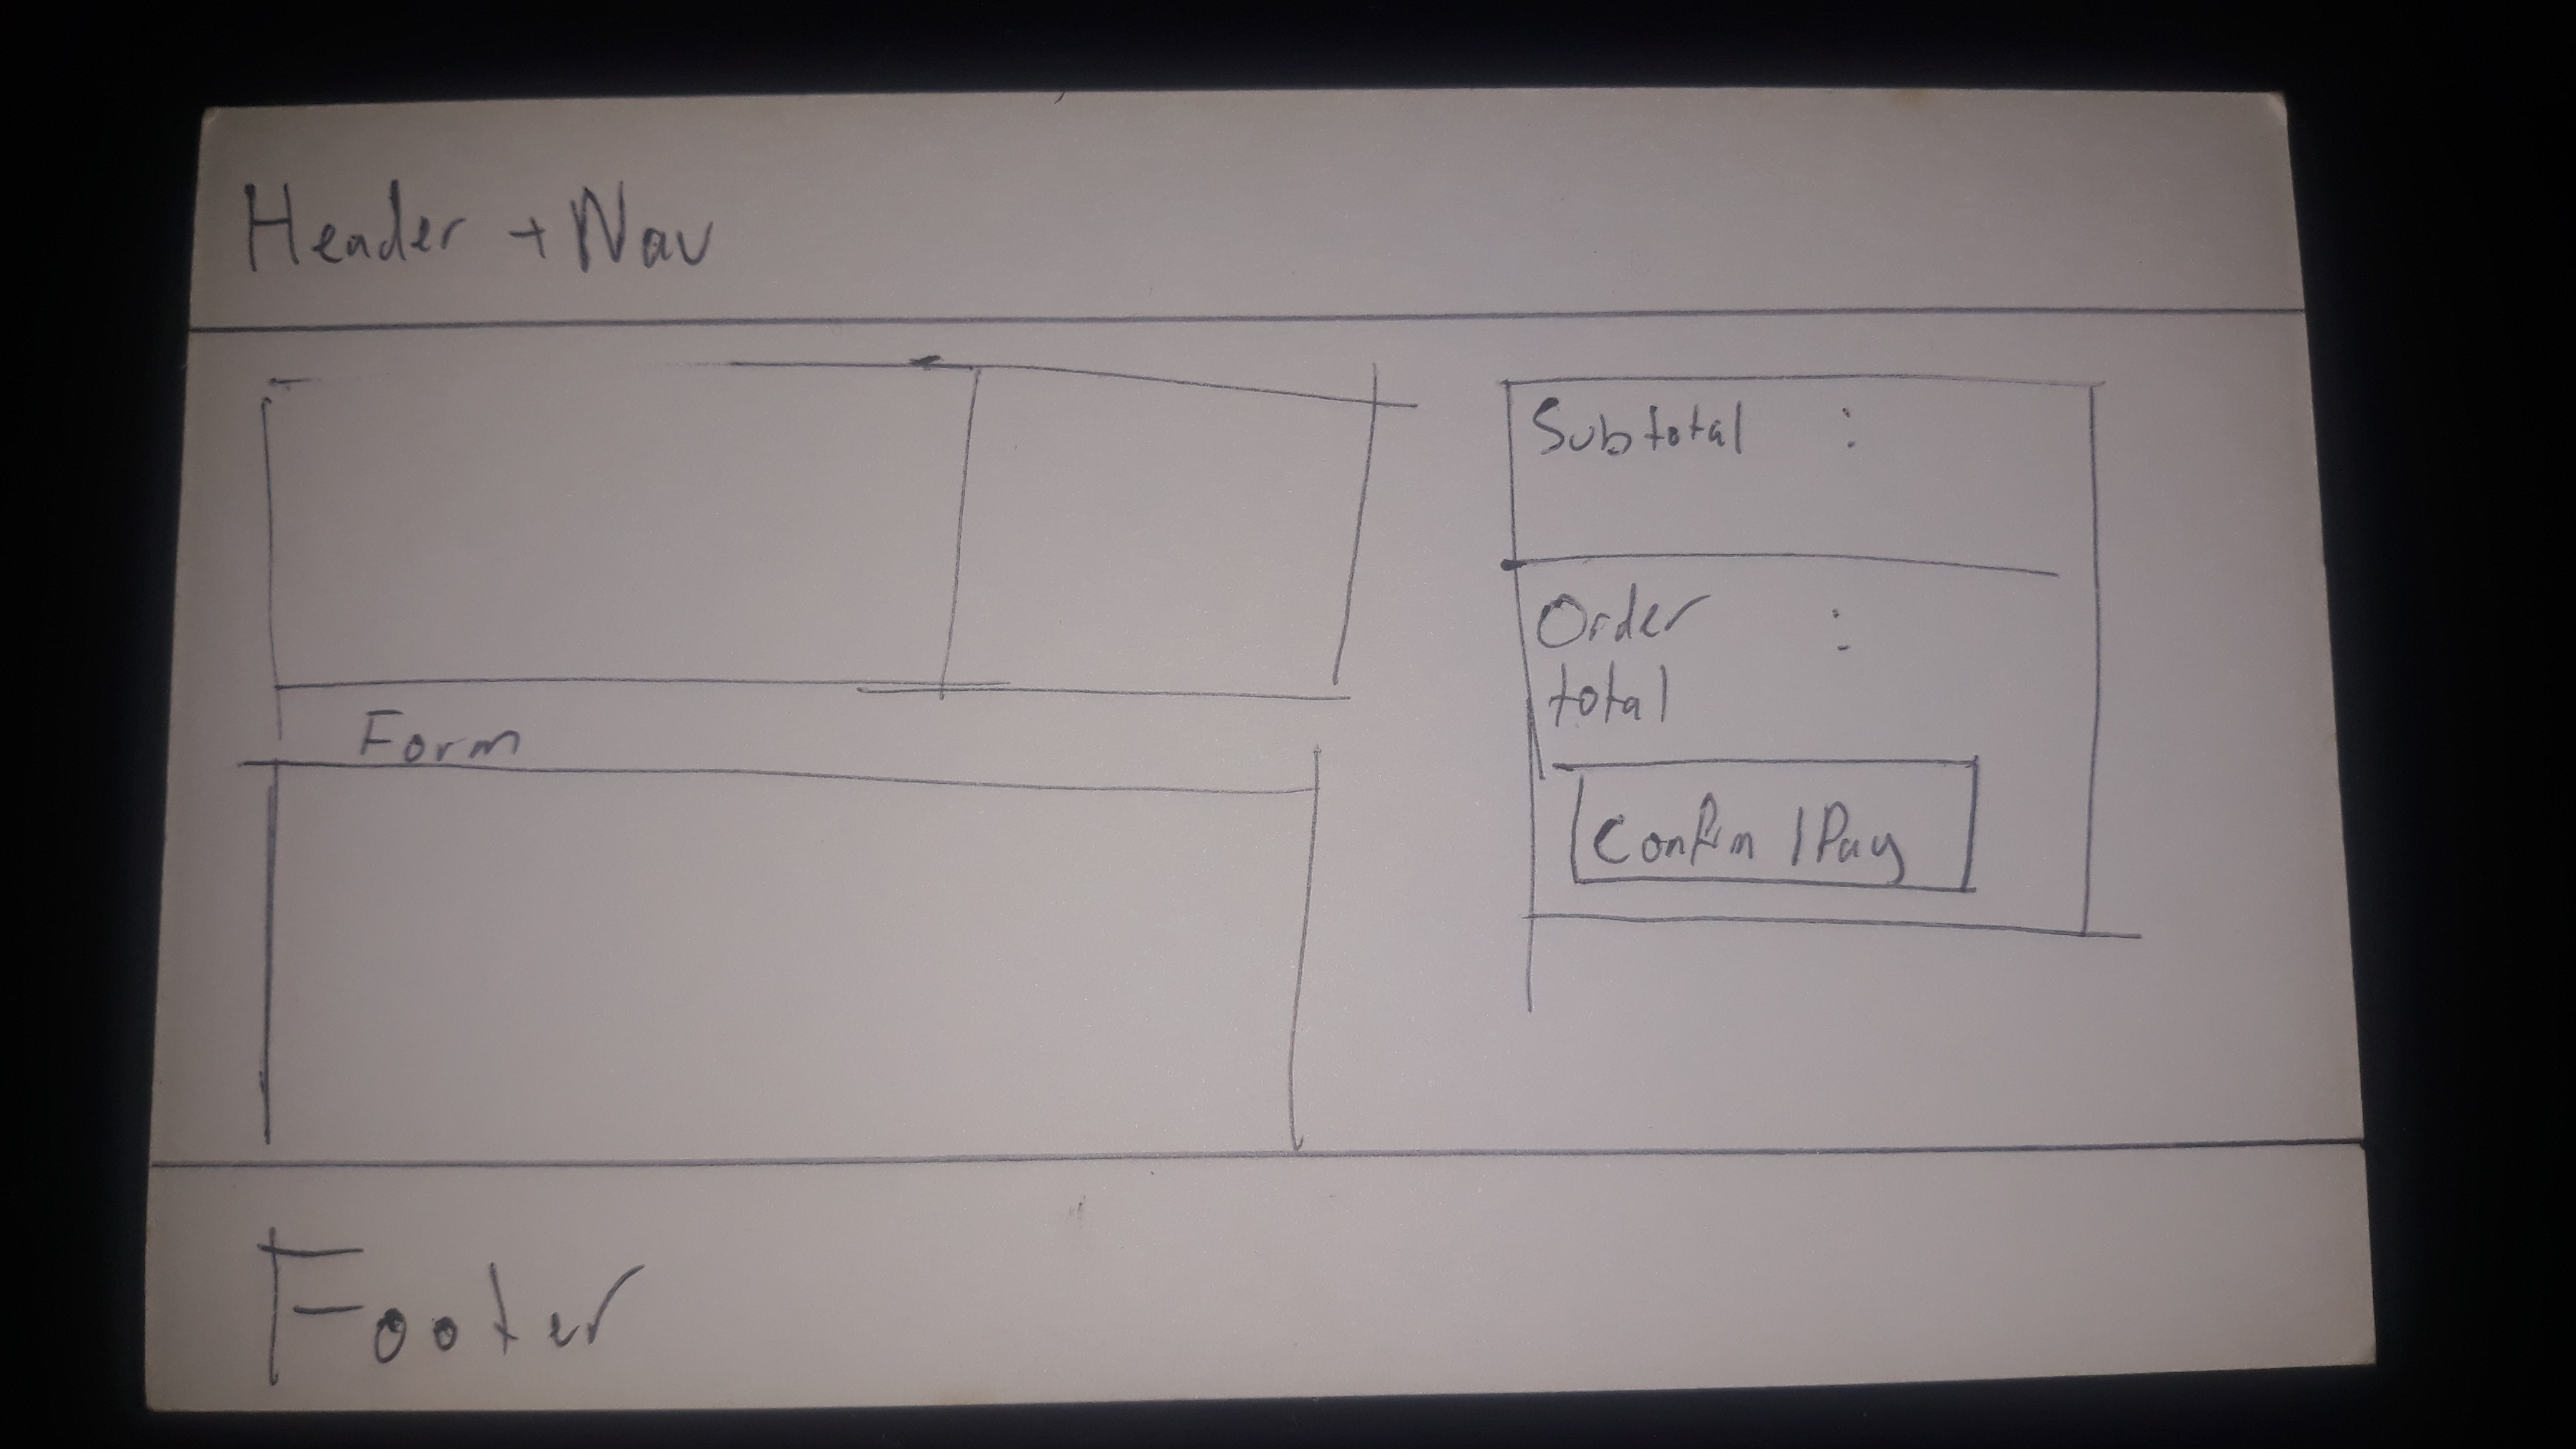 Header + Nav
Subtotal :
Order :
total
Form
Confim / Pay
Footer